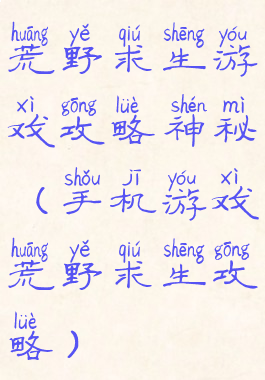 huāng yě qiú shēng yóu
荒野求生游
xì gōng lüè shén mì
戏攻略神秘
shǒu jī yóu xì
（手机游戏
huāng yě qiú shēng gōng
荒野求生攻
lüè
略）